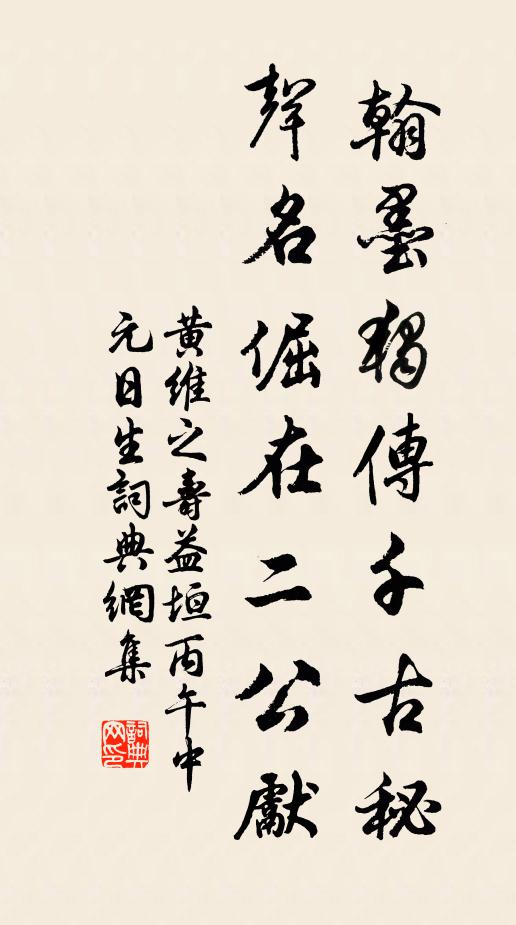 翰墨獨傳千古秘
聲名倔在二公獻
黃維之壽益垣丙午中
元日生詞典網集
詞典
網印